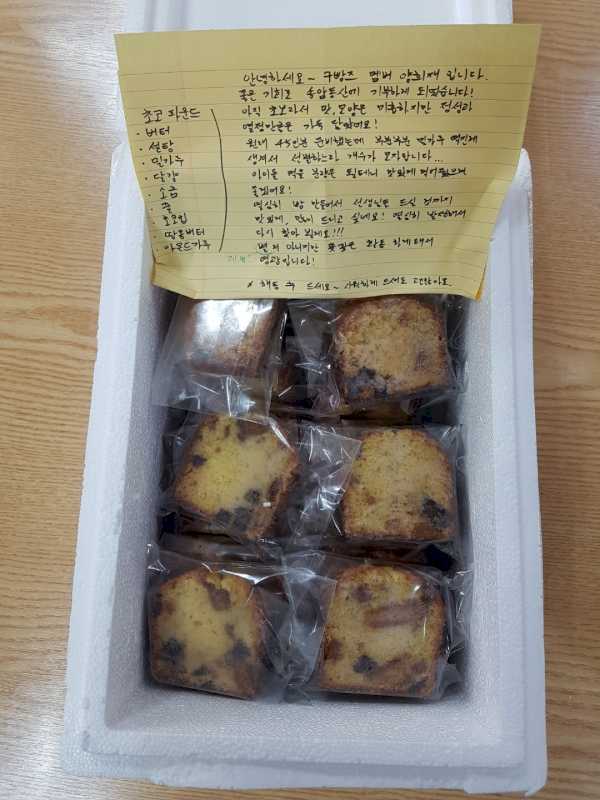 안녕하세요~ 구방즈 멤버 양희재 입니다.
좋은 기회로 숙압동산에 기부하게 되었습니다!
아직 초보라서 맛, 모양은 미흡하지만 정성과
열정만큼은 가득 담았어요!
원래 45인분 준비했는데 부분부분 밀가루 떡인게
생겨서 선별하느라 개수가 모자랍니다...
아이들 먹을 분량은 될테니 맛있게 먹어줬으면
좋겠어요!
열심히 빵 만들어서 선생님들 드실 것까지
맛있게, 많이 드리고 싶네요! 열심히 발전해서
다시 찾아 뵐게요!!!
별거 아니지만 좋은 하게 돼서
영광입니다!
* 해동 후 드세요~ 시원하게 드셔도 괜찮아요.
초코 파운드
· 버터
· 설탕
· 밀가루
· 달걀
· 소금
· 꿀
· 초코칩
· 땅콩버터
· 아몬드가루